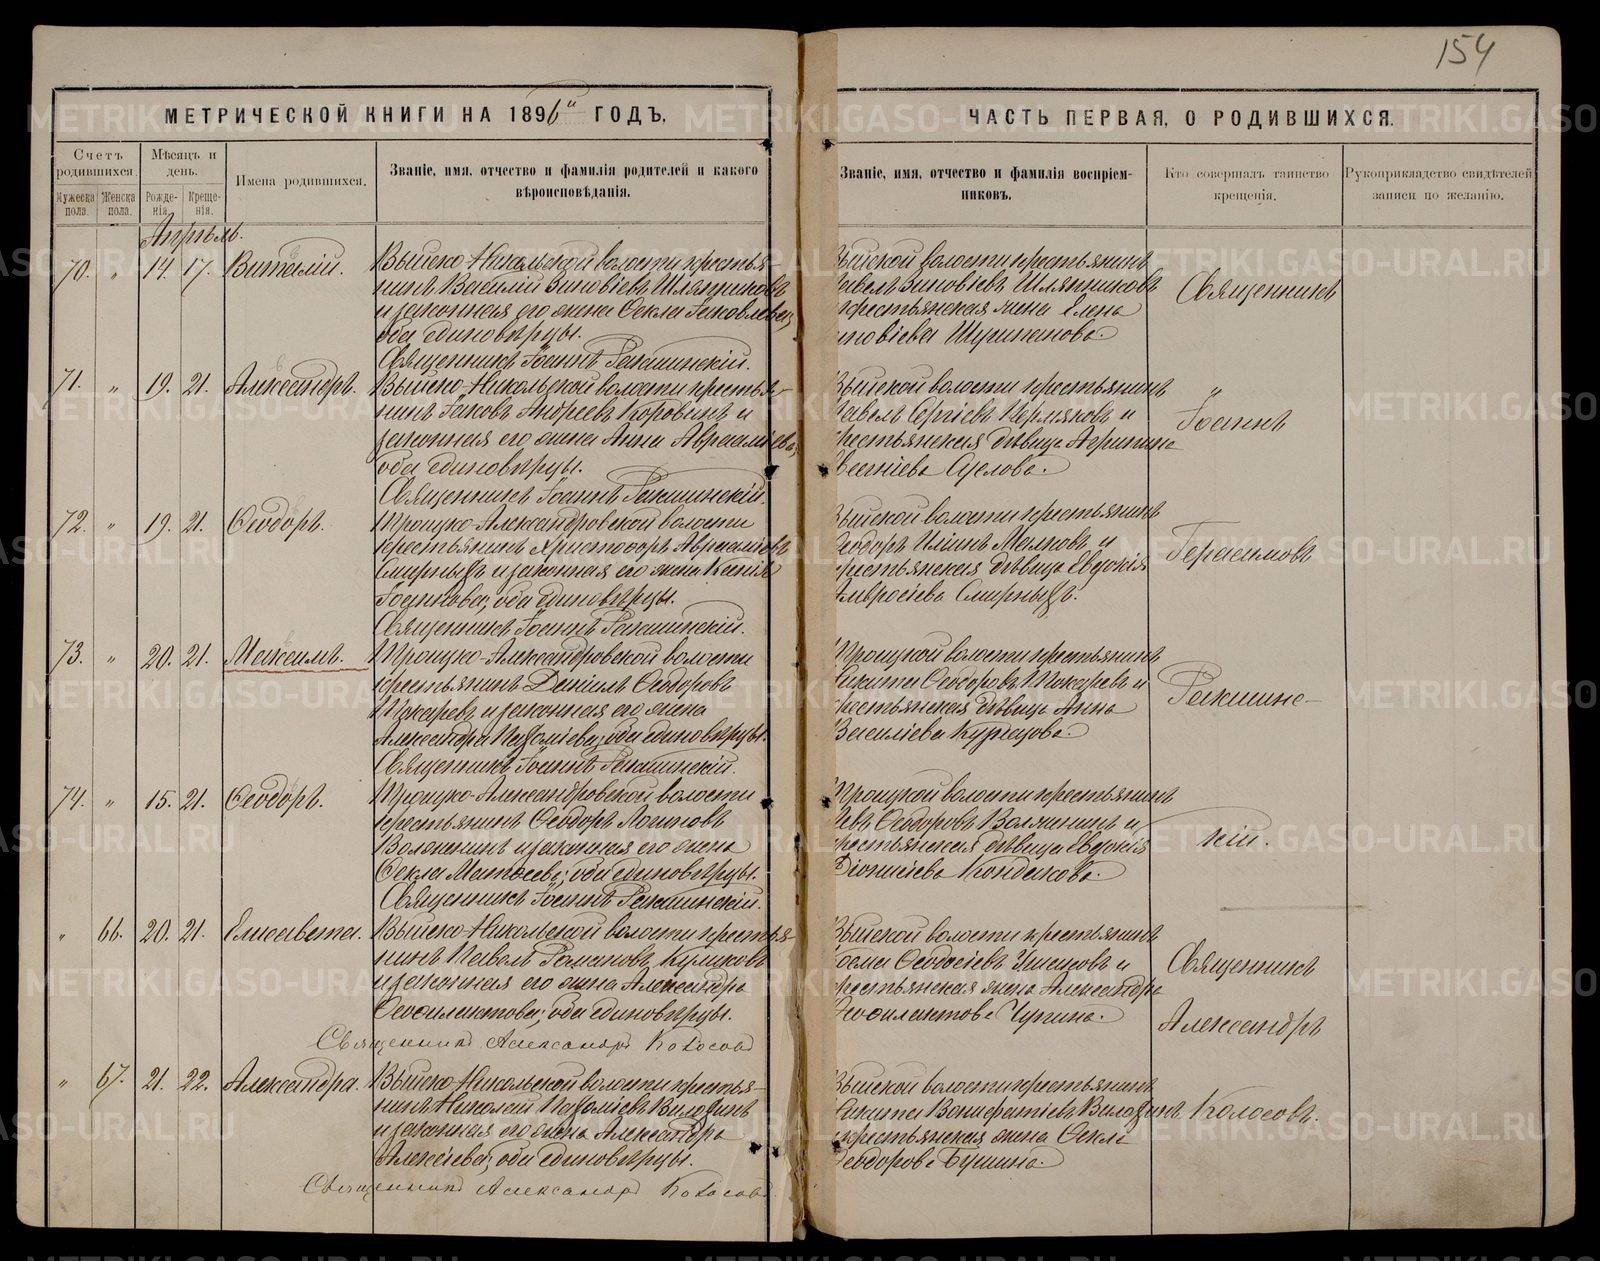 154
МЕТРИЧЕСКОЙ КНИГИ НА 1896й ГОДЪ,
ЧАСТЬ ПЕРВАЯ, О РОДИВШИХСЯ.
Счетъ родившихся.
Мужеска пола.
Женска пола.
Мѣсяцъ и день.
Рожде-нія.
Креще-нія.
Имена родившихся.
Званіе, имя, отчество и фамилія родителей и какого вѣроисповѣданія.
Званіе, имя, отчество и фамилія воспріем-никовъ.
Кто совершалъ таинство крещенія.
Рукоприкладство свидѣтелей записи по желанію.
Апрѣль.
70. " 14. 17. Виталій.
Выйско-Никольской волости крестья-
нинъ Василій Зиновіевъ Шляпниковъ
и законная его жена Ѳекла Іаковлева,
оба единовѣрцы.
Священникъ Іоаннъ Ракшинскій.
Выйской волости крестьянинъ
Павелъ Зиновіевъ Шляпниковъ
и крестьянская жена Елена
Зиновіева
71. " 19. 21. Александръ.
Выйско-Никольской волости крестья-
нинъ Іаковъ Андреевъ Коровинъ и
законная его жена Анна Аврааміева,
оба единовѣрцы.
Священникъ Іоаннъ Ракшинскій.
Выйской волости крестьянинъ
Павелъ Сергіевъ Пермяковъ и
крестьянская дѣвица Агрипина
72. " 19. 21. Ѳеодоръ.
Троицко-Александровской волости
крестьянинъ Христофоръ Авраамовъ
Смирныхъ и законная его жена Ксенія
оба единовѣрцы.
Священникъ Іоаннъ Ракшинскій.
Выйской волости крестьянинъ
Ѳеодоръ Ильинъ Малковъ и
крестьянская дѣвица Евдокія
Амвросіева Смирныхъ.
73. " 20. 21. Максимъ.
Троицко-Александровской волости
крестьянинъ Даніилъ Ѳеодоровъ
Токаревъ и законная его жена
Александра Пахоміева, оба единовѣрцы.
Священникъ Іоаннъ Ракшинскій.
Троицкой волости крестьянинъ
Никита Ѳеодоровъ Токаревъ и
крестьянская дѣвица Анна
Василіева Курнцова.
74. " 15. 21. Ѳеодоръ.
Троицко-Александровской волости
крестьянинъ Ѳеодоръ Логиновъ
Воложенинъ и законная его жена
Ѳекла Матѳеева, оба единовѣрцы.
Священникъ Іоаннъ Ракшинскій.
Троицкой волости крестьянинъ
Левъ Ѳеодоровъ Воложенинъ и
крестьянская дѣвица Евдокія
Діонисіева Кондакова.
Священникъ
"
Іоаннъ
Герасимовъ
Ракшинс-
кій.
" 66. 20. 21. Елисавета.
Выйско-Никольской волости крестья-
нинъ Павелъ Романовъ Куликовъ
и законная его жена Александра
Ѳеофилактова, оба единовѣрцы.
Священникъ Александръ Колосовъ
Выйской волости крестьянинъ
Косма Ѳеодосіевъ и
крестьянская жена Александра
Ѳеофилактова Чупина.
" 67. 21. 22. Александра.
Выйско-Никольской волости крестья-
нинъ Николай Пахоміевъ Вилохинъ
и законная его жена Александра
Алексіева, оба единовѣрцы.
Священникъ Александръ Колосовъ
Выйской волости крестьянинъ
Никита Вонифатіевъ Вилохинъ
и крестьянская жена Ѳекла
Ѳеодорова Бушина.
Священникъ
Александръ
Колосовъ.
METRIKI.GASO-URAL.RU